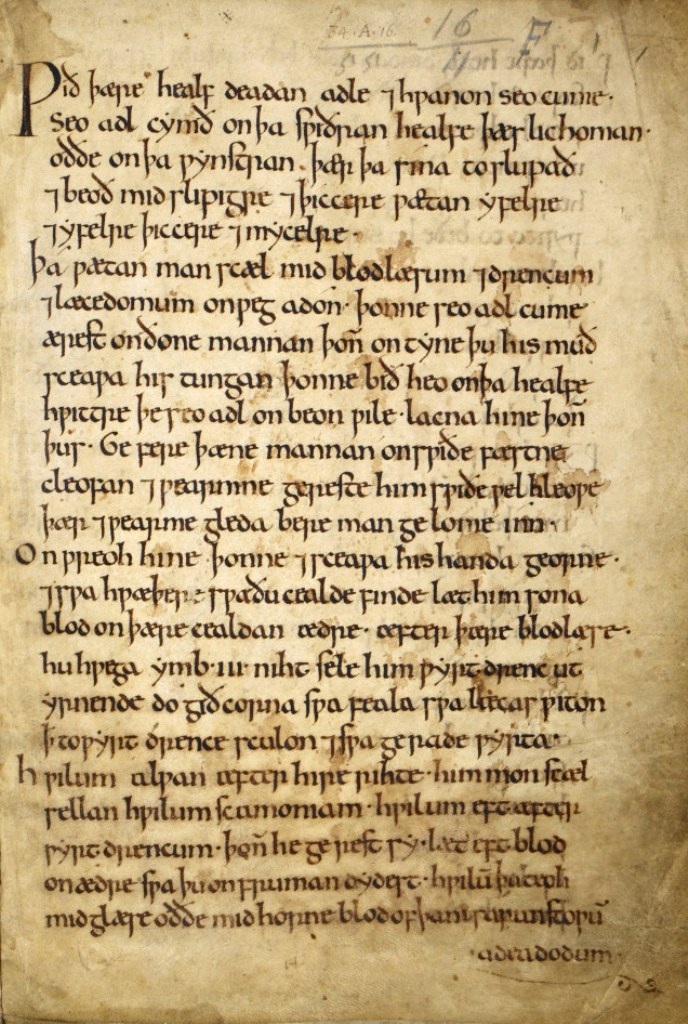 34. A. 16. 16 F
Ƿið þære healf deadan adle ⁊ hƿanon seo cume·
seo adl cymð on þa sƿiðran healfe þæs lichoman·
oððe on þa ƿynstran. þær þa sina toslupað
⁊ beoð mid slipigre ⁊ þiccere ƿætan yfelre
⁊ yfelre þiccere ⁊ mycelre·
Þa ƿætan man scæl mid blodlæsum ⁊ drencum
⁊ læcedomum onƿeg adon· þonne seo adl cume
ærest on ðone mannan þoñ ontyne þu his muð
sceaƿa his tungan þonne bið heo on þa healfe
hƿittre þe seo adl on beon ƿile· lacna hine þoñ
þus· Ge fere þæne mannan on sƿiðe fæstne
cleofan ⁊ ƿearmne gereste him sƿiðe ƿel hleoƿe
þær ⁊ ƿearme gleda bere man gelome inn·
Onƿreoh hine þonne ⁊ sceaƿa his handa georne·
⁊ sƿa hƿæþere sƿa ðu cealde finde læt him sona
blod on þære cealdan ædre· æfter þære blodlæse·
hu hƿega ymb·iii· niht sele him ƿyrt drenc ut
yrnende do gið corna sƿa feala sƿa læcas ƿiton
ꝥ to ƿyrt drence sculon ⁊ sƿa gerade ƿyrta·
hƿilum alƿan æfter hire rihte· him mon scæl
sellan hƿilum scamoniam· hƿilum eft æfter
ƿyrt drencum· þoñ he gerest sy· læt eft blod
on ædre sƿa þu on fruman dydest· hƿilū þu teoh
mid glæse oððe mid horne blod of þam sarum stoƿū
adeadodum·